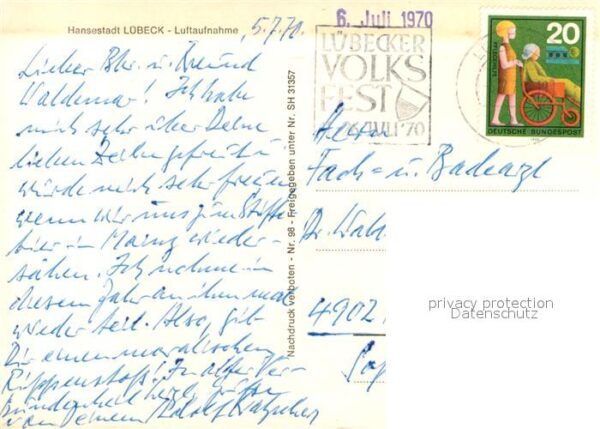 Hansestadt LÜBECK - Luftaufnahme
5.7.70.
Lieber Bbr. u. Freund
Waldemar! Ich habe
mich sehr über Deine
lieben Zeilen gefreut u.
würde mich sehr freuen
wenn wir uns zum Stiftg.
hier in Mainz wieder-
sähen. Ich nehme in
diesem Jahr an ihm mal
wieder teil. Also, gib
Dir einen moralischen
Rippenstoß! In alter Ver-
bundenheit herzl. Grüße
von Deinem Adolf
Nachdruck verboten - Nr. 98 - Freigegeben unter Nr. SH 31357
6. Juli 1970
LÜBECKER
VOLKS
FEST
JULI '70
20
DEUTSCHE BUNDESPOST
Herrn
Fach- u. Badearzt
Dr.
4902
privacy protection
Datenschutz